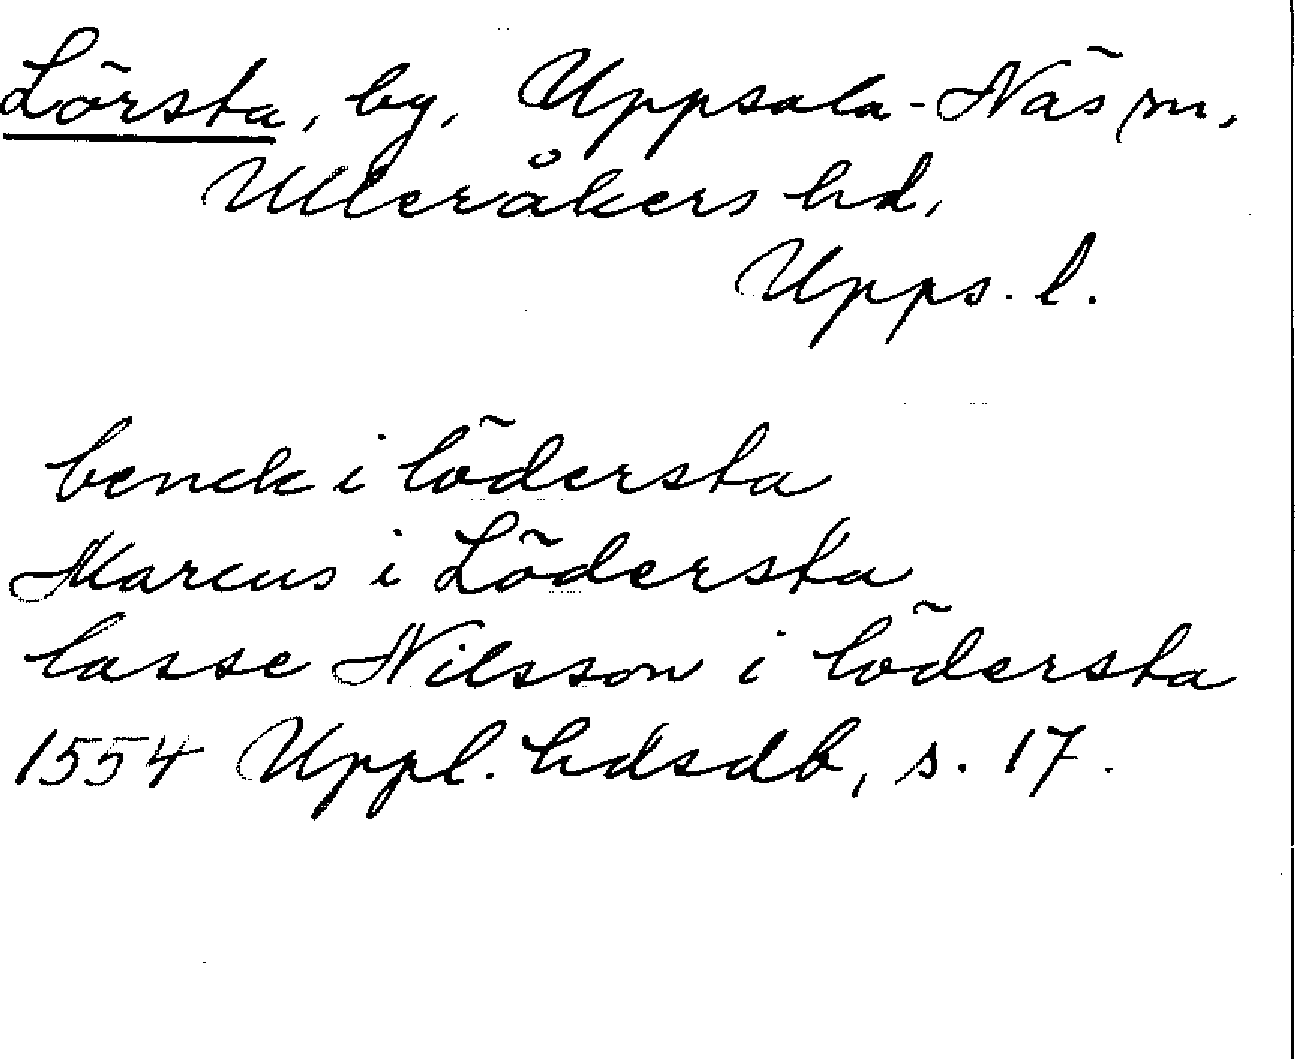 Lörsta, by, Uppsala-Näs sn,
Ulleråkers hd,
Upps. l.
benck i lödersta
Marcus i Lödersta
lasse Nilsson i lödersta
1554 Uppl. hdsdb, s. 17.